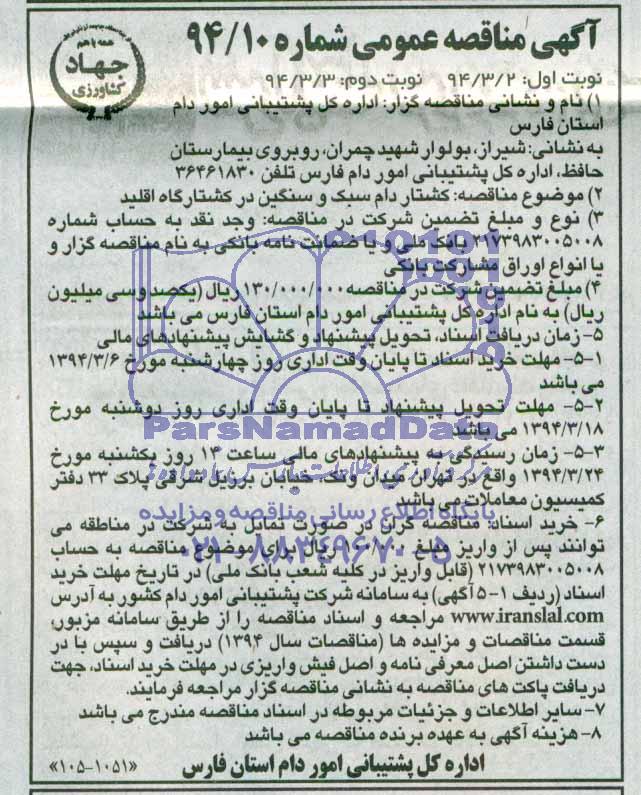 آگهی مناقصه عمومی شماره ۹۴/۱۰
همه با هم
جهاد
کشاورزی
نوبت اول: ۹۴/۳/۲ نوبت دوم: ۹۴/۳/۳
۱) نام و نشانی مناقصه گزار: اداره کل پشتیبانی امور دام
استان فارس
به نشانی: شیراز، بولوار شهید چمران، روبروی بیمارستان
حافظ، اداره کل پشتیبانی امور دام فارس تلفن ۳۶۴۶۱۸۳۰
۲) موضوع مناقصه: کشتار دام سبک و سنگین در کشتارگاه اقلید
۳) نوع و مبلغ تضمین شرکت در مناقصه: وجد نقد به حساب شماره
۲۱۷۳۹۸۳۰۰۵۰۰۸ بانک ملی و یا ضمانت نامه بانکی به نام مناقصه گزار و
یا انواع اوراق مشارکت بانکی
۴) مبلغ تضمین شرکت در مناقصه ۱۳۰/۰۰۰/۰۰۰ ریال (یکصد وسی میلیون
ریال) به نام اداره کل پشتیبانی امور دام استان فارس می باشد
۵- زمان دریافت اسناد، تحویل پیشنهاد و گشایش پیشنهادهای مالی
۵-۱- مهلت خرید اسناد تا پایان وقت اداری روز چهارشنبه مورخ ۱۳۹۴/۳/۶
می باشد
۵-۲- مهلت تحویل پیشنهاد تا پایان وقت اداری روز دوشنبه مورخ
۱۳۹۴/۳/۱۸ می باشد
ParsNamadData
۵-۳- زمان رسیدگی به پیشنهادهای مالی ساعت ۱۴ روز یکشنبه مورخ
۱۳۹۴/۳/۲۴ واقع در تهران میدان ونک، خیابان برزیل شرقی پلاک ۳۳ دفتر
کمیسیون معاملات می باشد
پایگاه اطلاع رسانی مناقصه و مزایده
۶- خرید اسناد: مناقصه گران در صورت تمایل به شرکت در مناقطه می
توانند پس از واریز مبلغ ریال برای موضوع مناقصه به حساب
۰۲۱-۸۸۳۴۹۶۷۰-۵
۲۱۷۳۹۸۳۰۰۵۰۰۸ (قابل واریز در کلیه شعب بانک ملی) در تاریخ مهلت خرید
اسناد (ردیف ۱-۵ آگهی) به سامانه شرکت پشتیبانی امور دام کشور به آدرس
www.iranslal.com مراجعه و اسناد مناقصه را از طریق سامانه مزبور،
قسمت مناقصات و مزایده ها (مناقصات سال ۱۳۹۴) دریافت و سپس با در
دست داشتن اصل معرفی نامه و اصل فیش واریزی در مهلت خرید اسناد، جهت
دریافت پاکت های مناقصه به نشانی مناقصه گزار مراجعه فرمایند.
۷- سایر اطلاعات و جزئیات مربوطه در اسناد مناقصه مندرج می باشد
۸- هزینه آگهی به عهده برنده مناقصه می باشد
اداره کل پشتیبانی امور دام استان فارس
«۱۰۵-۱۰۵۱»